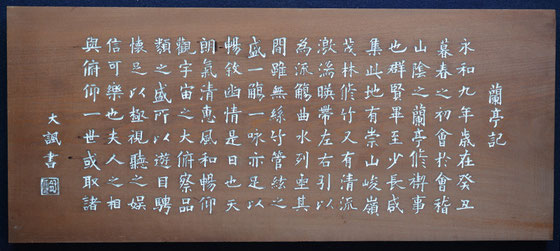 蘭亭記
永和九年歳在癸丑
暮春之初會於會稽
山陰之蘭亭脩禊事
也群賢畢至少長咸
集此地有崇山峻嶺
茂林脩竹又有清流
激湍暎帶左右引以
為流觴曲水列坐其
間雖無絲竹管絃之
盛一觴一咏亦足以
暢敘幽情是日也天
朗氣清惠風和暢仰
觀宇宙之大俯察品
類之盛所以遊目騁
懷足以極視聽之娯
信可樂也夫人之相
與俯仰一世或取諸
大諷書